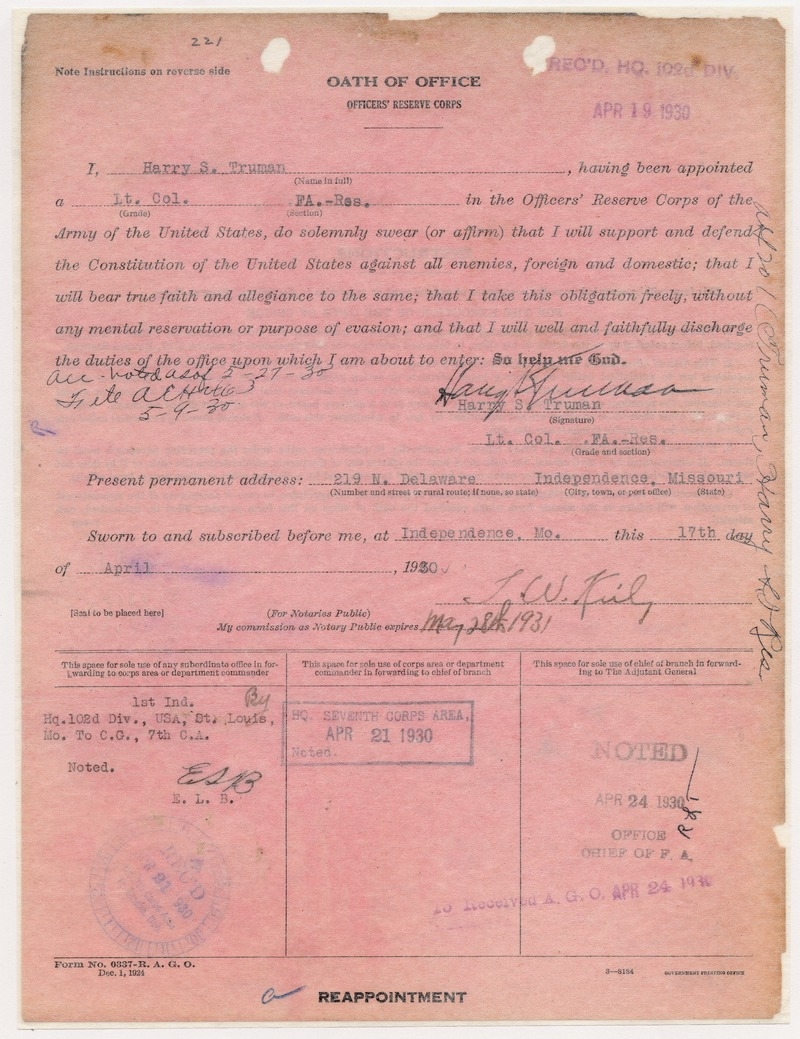 221
Note Instructions on reverse side
REC'D. HQ. 102d DIV.
APR 19 1930
OATH OF OFFICE
OFFICERS' RESERVE CORPS
I, Harry S. Truman, having been appointed
(Name in full)
a Lt. Col. FA.-Res. in the Officers' Reserve Corps of the
(Grade) (Section)
Army of the United States, do solemnly swear (or affirm) that I will support and defend
the Constitution of the United States against all enemies, foreign and domestic; that I
will bear true faith and allegiance to the same; that I take this obligation freely, without
any mental reservation or purpose of evasion; and that I will well and faithfully discharge
the duties of the office upon which I am about to enter: So help me God.
5-27-30
5-9-30
Harry S. Truman
Harry S. Truman
(Signature)
Lt. Col. FA.-Res.
(Grade and section)
Present permanent address: 219 N. Delaware Independence, Missouri
(Number and street or rural route; if none, so state) (City, town, or post office) (State)
Sworn to and subscribed before me, at Independence, Mo. this 17th day
of April, 1930
[Seal to be placed here]
(For Notaries Public)
My commission as Notary Public expires May 28th 1931
Truman, Harry S
This space for sole use of any subordinate office in for-
warding to corps area or department commander
This space for sole use of corps area or department
commander in forwarding to chief of branch
This space for sole use of chief of branch in forward-
ing to The Adjutant General
1st Ind. By
Hq.102d Div., USA, St. Louis,
Mo. To C.G., 7th C.A.
Noted.
ELB
E. L. B.
HQ. SEVENTH CORPS AREA,
APR 21 1930
Noted.
NOTED
APR 24 1930
OFFICE
CHIEF OF F. A.
Received A. G. O. APR 24 1930
REC'D
Form No. 0337-R. A. G. O.
Dec. 1, 1924
3-8184 GOVERNMENT PRINTING OFFICE
REAPPOINTMENT